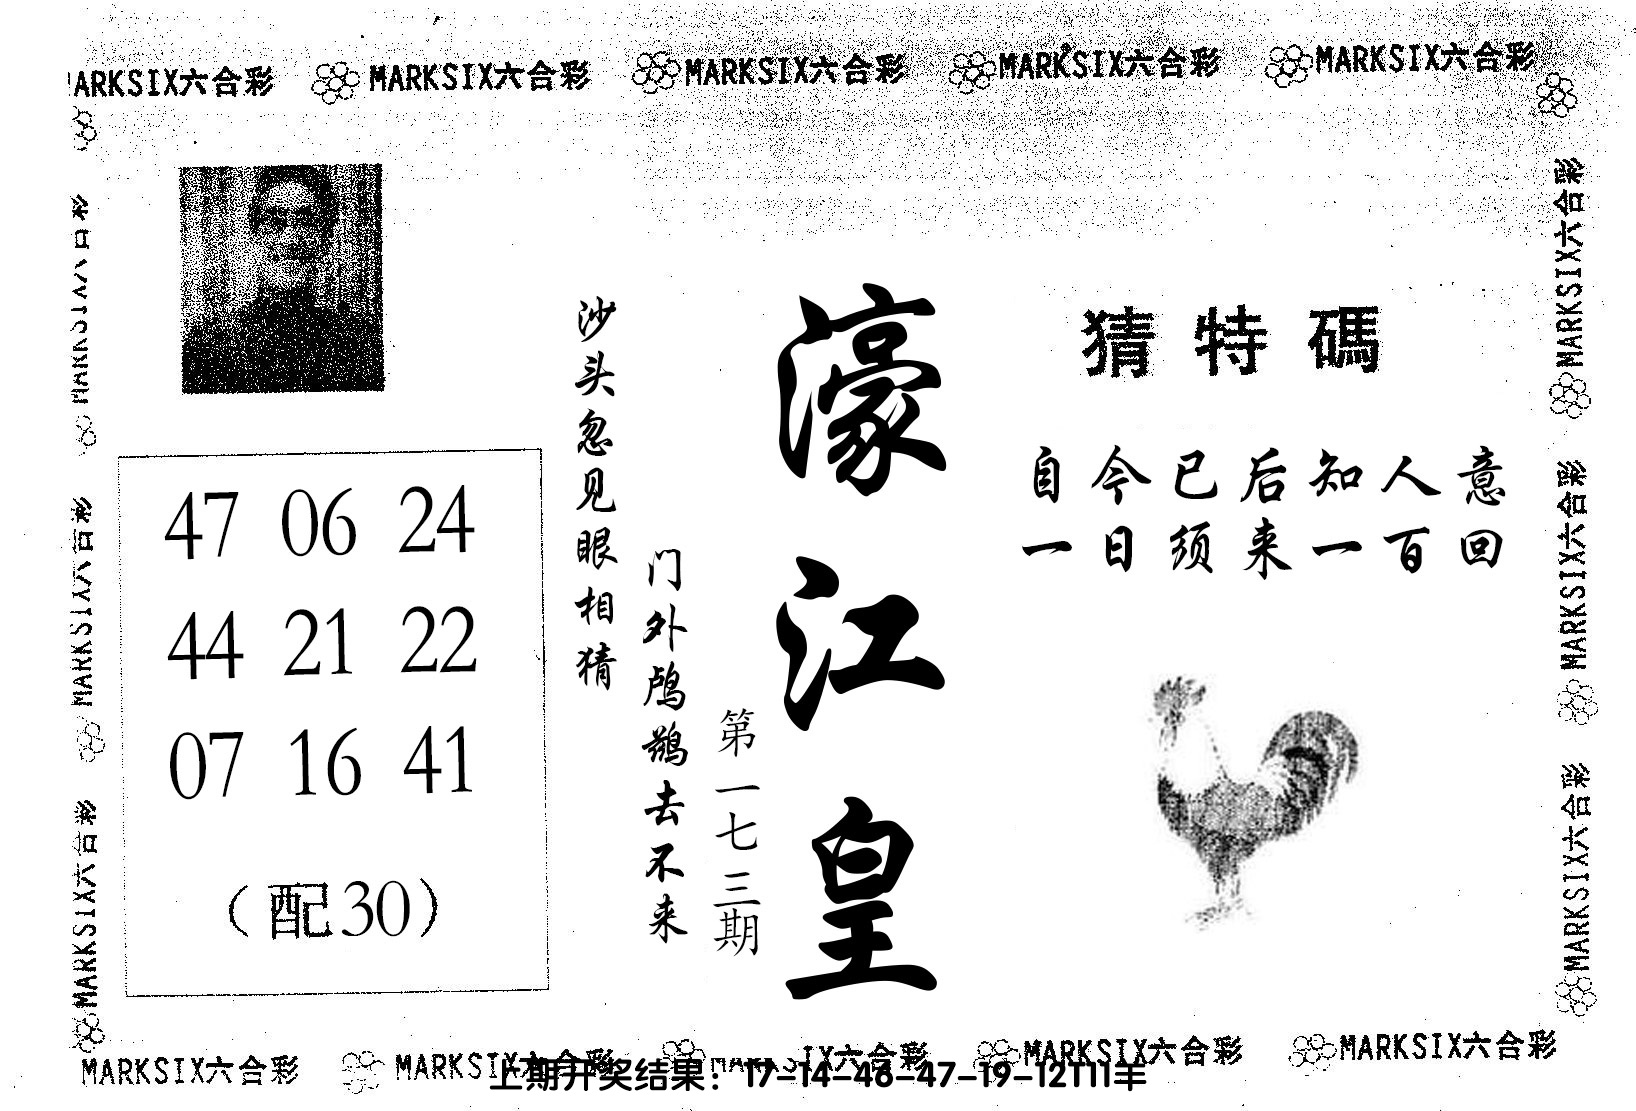 MARKSIX六合彩 MARKSIX六合彩 MARKSIX六合彩 MARKSIX六合彩 MARKSIX六合彩
猜特碼
自今已后知人意
一日须来一百回
濠江皇
第一七三期
门外鸬鹚去不来
沙头忽见眼相猜
47 06 24
44 21 22
07 16 41
（配30）
MARKSIX六合彩
MARKSIX六合彩
MARKSIX六合彩
MARKSIX六合彩
MARKSIX六合彩
MARKSIX六合彩
MARKSIX六合彩 MARKSIX六合彩 MARKSIX六合彩 MARKSIX六合彩 MARKSIX六合彩
上期开奖结果：17-14-46-47-19-12T11羊